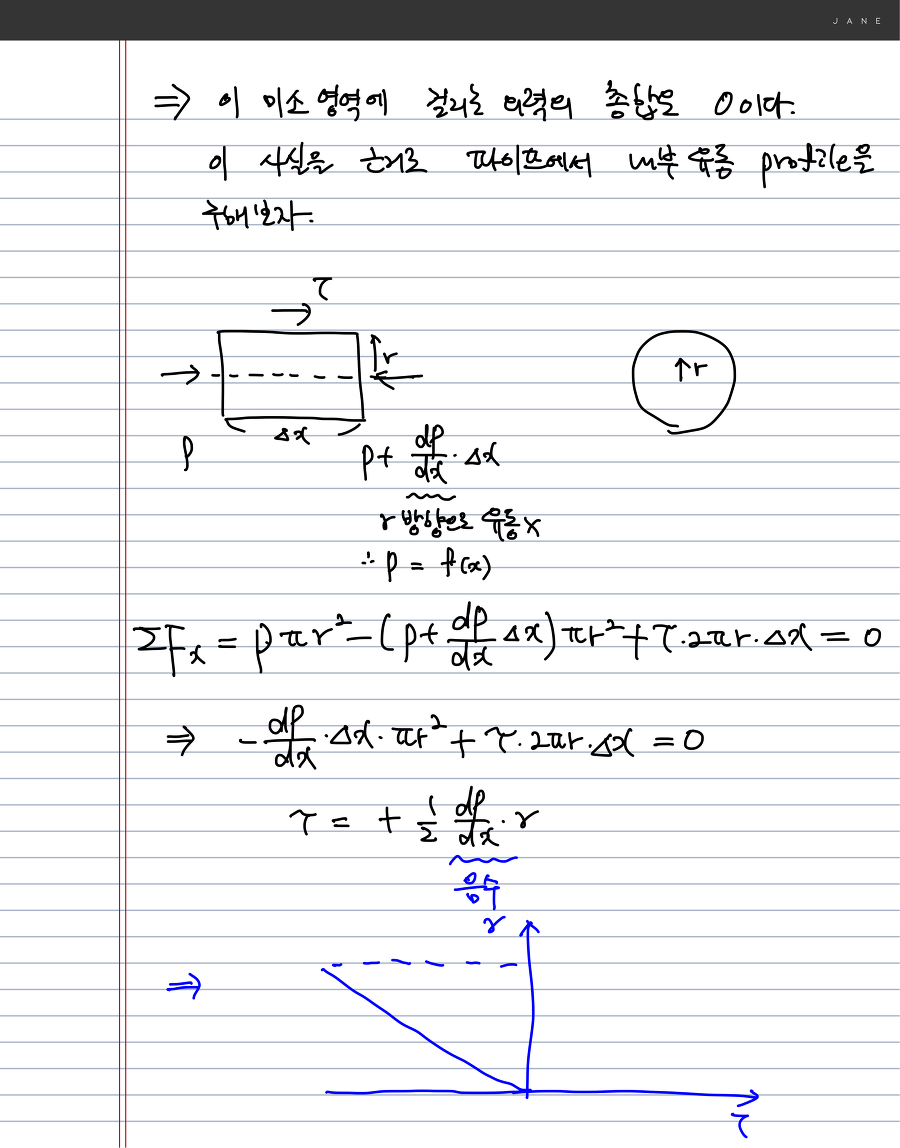 JANE
⇒ 이 미소 영역에 걸리는 외력의 총합은 0이다.
이 사실을 근거로 파이프에서 내부 유동 profile을
구해보자.
τ
r
r
Δx
P
P + dP/dx · Δx
r 방향으로 유동 x
∴ P = f(x)
ΣFx = Pπr² - (P + dP/dx Δx)πr² + τ·2πr·Δx = 0
⇒ - dP/dx · Δx · πr² + τ·2πr·Δx = 0
τ = + 1/2 dP/dx · r
음수
r
⇒
τ